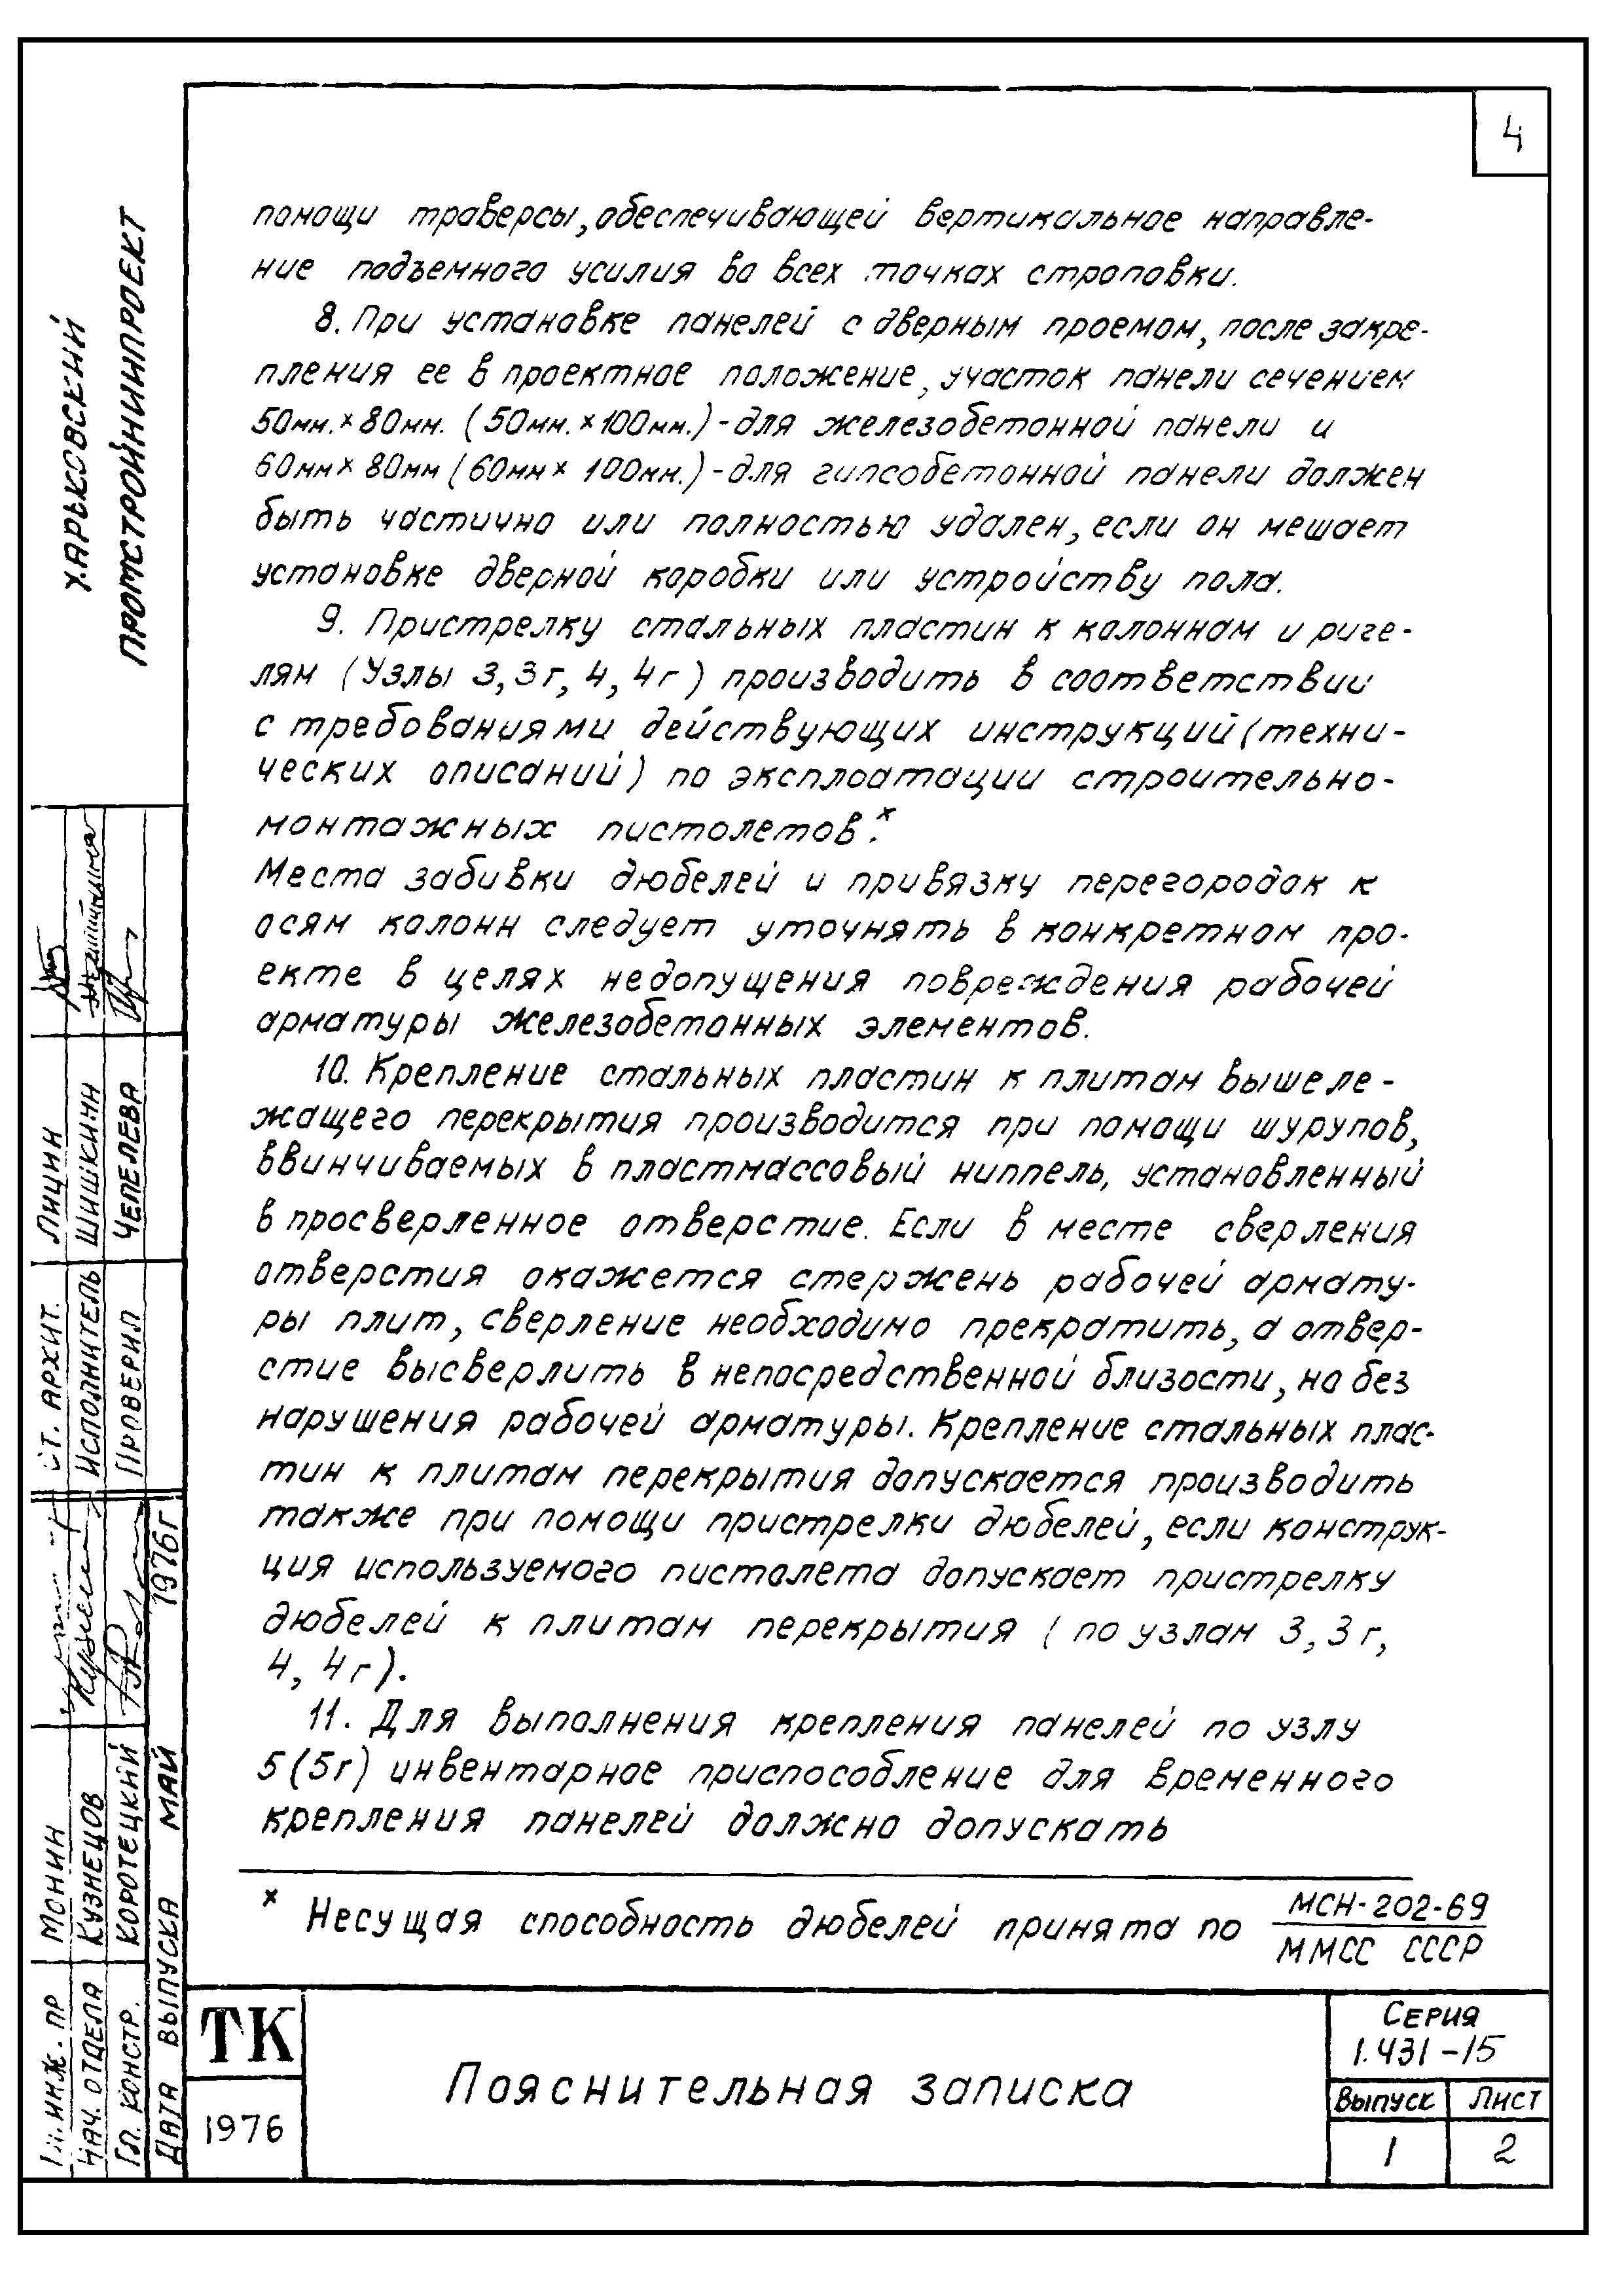 4
помощи траверсы, обеспечивающей вертикальное направле-
ние подъемного усилия во всех точках строповки.
8. При установке панелей с дверным проемом, после закре-
пления ее в проектное положение, участок панели сечением
50мм.×80мм. (50мм.×100мм.)-для железобетонной панели и
60мм×80мм (60мм×100мм.)-для гипсобетонной панели должен
быть частично или полностью удален, если он мешает
установке дверной коробки или устройству пола.
9. Пристрелку стальных пластин к колоннам и риге-
лям (Узлы 3, 3г, 4, 4г) производить в соответствии
с требованиями действующих инструкций (техни-
ческих описаний) по эксплоатации строительно-
монтажных пистолетов.ˣ
Места забивки дюбелей и привязку перегородок к
осям колонн следует уточнять в конкретном про-
екте в целях недопущения повреждения рабочей
арматуры железобетонных элементов.
10. Крепление стальных пластин к плитам вышеле-
жащего перекрытия производится при помощи шурупов,
ввинчиваемых в пластмассовый ниппель, установленный
в просверленное отверстие. Если в месте сверления
отверстия окажется стержень рабочей армату-
ры плит, сверление необходимо прекратить, а отвер-
стие высверлить в непосредственной близости, но без
нарушения рабочей арматуры. Крепление стальных плас-
тин к плитам перекрытия допускается производить
также при помощи пристрелки дюбелей, если конструк-
ция используемого пистолета допускает пристрелку
дюбелей к плитам перекрытия (по узлам 3, 3г,
4, 4г).
11. Для выполнения крепления панелей по узлу
5(5г) инвентарное приспособление для временного
крепления панелей должно допускать
ˣ Несущая способность дюбелей принята по МСН-202-69
ММСС СССР
ТК
1976
Пояснительная записка
Серия
1.431-15
Выпуск
Лист
1
2
ХАРЬКОВСКИЙ
ПРОМСТРОЙНИИПРОЕКТ
Ст. архит. Лицин
Исполнитель Шишкина
Проверил Чепелева
Гл. инж. пр Монин
Нач. отдела Кузнецов
Гл. констр. Коротецкий
Дата выпуска май 1976г